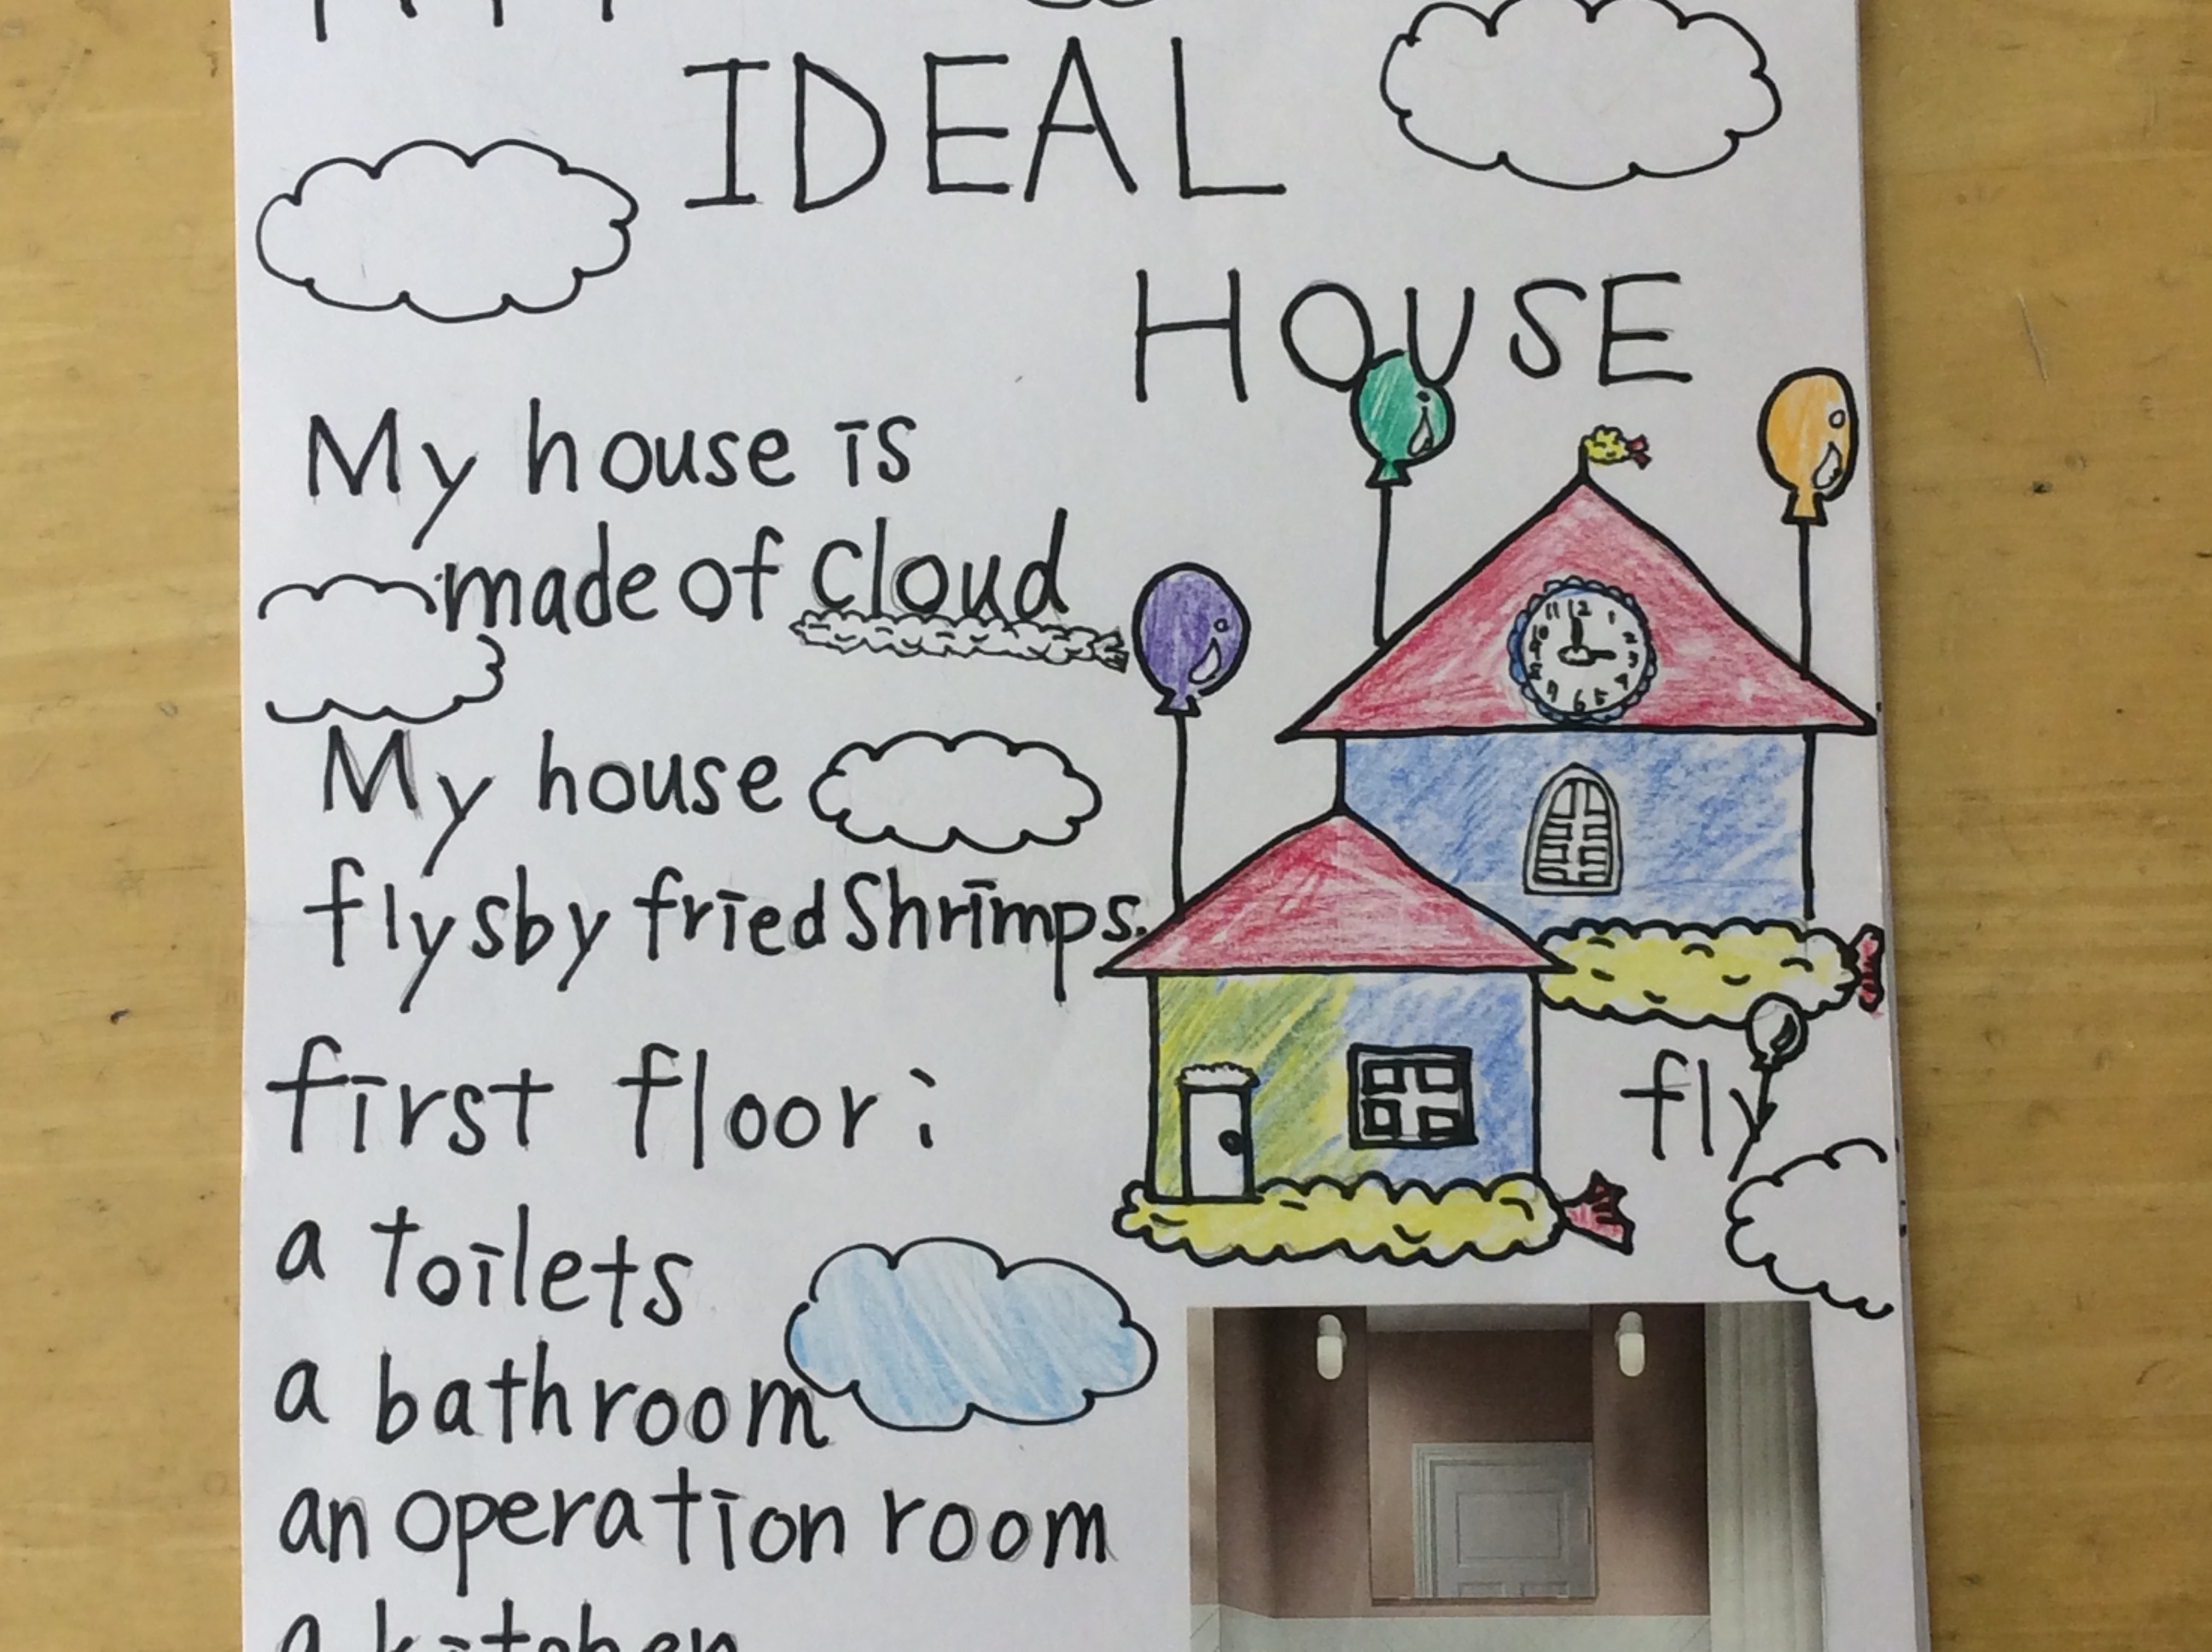 IDEAL
HOUSE
My house is
made of cloud
My house
flysby fried Shrimps.
first floor:
fly
a toilets
a bathroom
an operation room
a kitchen